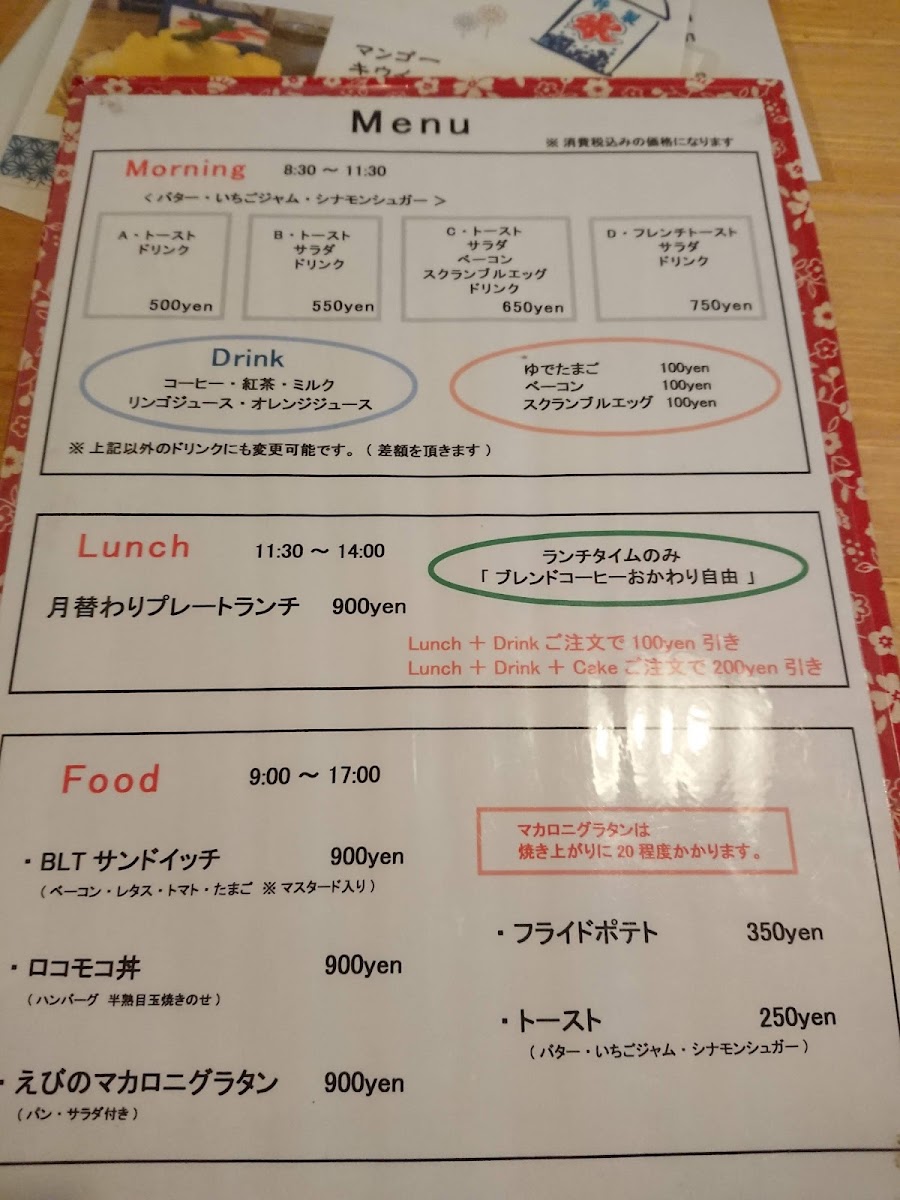 マンゴー
キウイ
Menu
※ 消費税込みの価格になります
Morning 8:30 ～ 11:30
＜ バター・いちごジャム・シナモンシュガー ＞
A・トースト
ドリンク
500yen
B・トースト
サラダ
ドリンク
550yen
C・トースト
サラダ
ベーコン
スクランブルエッグ
ドリンク
650yen
D・フレンチトースト
サラダ
ドリンク
750yen
Drink
コーヒー・紅茶・ミルク
リンゴジュース・オレンジジュース
ゆでたまご 100yen
ベーコン 100yen
スクランブルエッグ 100yen
※ 上記以外のドリンクにも変更可能です。（ 差額を頂きます ）
Lunch 11:30 ～ 14:00
ランチタイムのみ
「 ブレンドコーヒーおかわり自由 」
月替わりプレートランチ 900yen
Lunch ＋ Drink ご注文で 100yen 引き
Lunch ＋ Drink ＋ Cake ご注文で 200yen 引き
Food 9:00 ～ 17:00
マカロニグラタンは
焼き上がりに 20 程度かかります。
・BLT サンドイッチ 900yen
（ ベーコン・レタス・トマト・たまご ※ マスタード入り ）
・ロコモコ丼 900yen
（ ハンバーグ 半熟目玉焼きのせ ）
・えびのマカロニグラタン 900yen
（ パン・サラダ付き ）
・フライドポテト 350yen
・トースト 250yen
（ バター・いちごジャム・シナモンシュガー ）